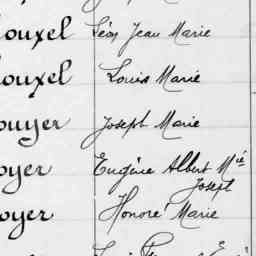 ouxel Léon Jean Marie
ouxel Louis Marie
ouyer Joseph Marie
oyer Eugène Albert Mie
Joseph
oyer Honoré Marie